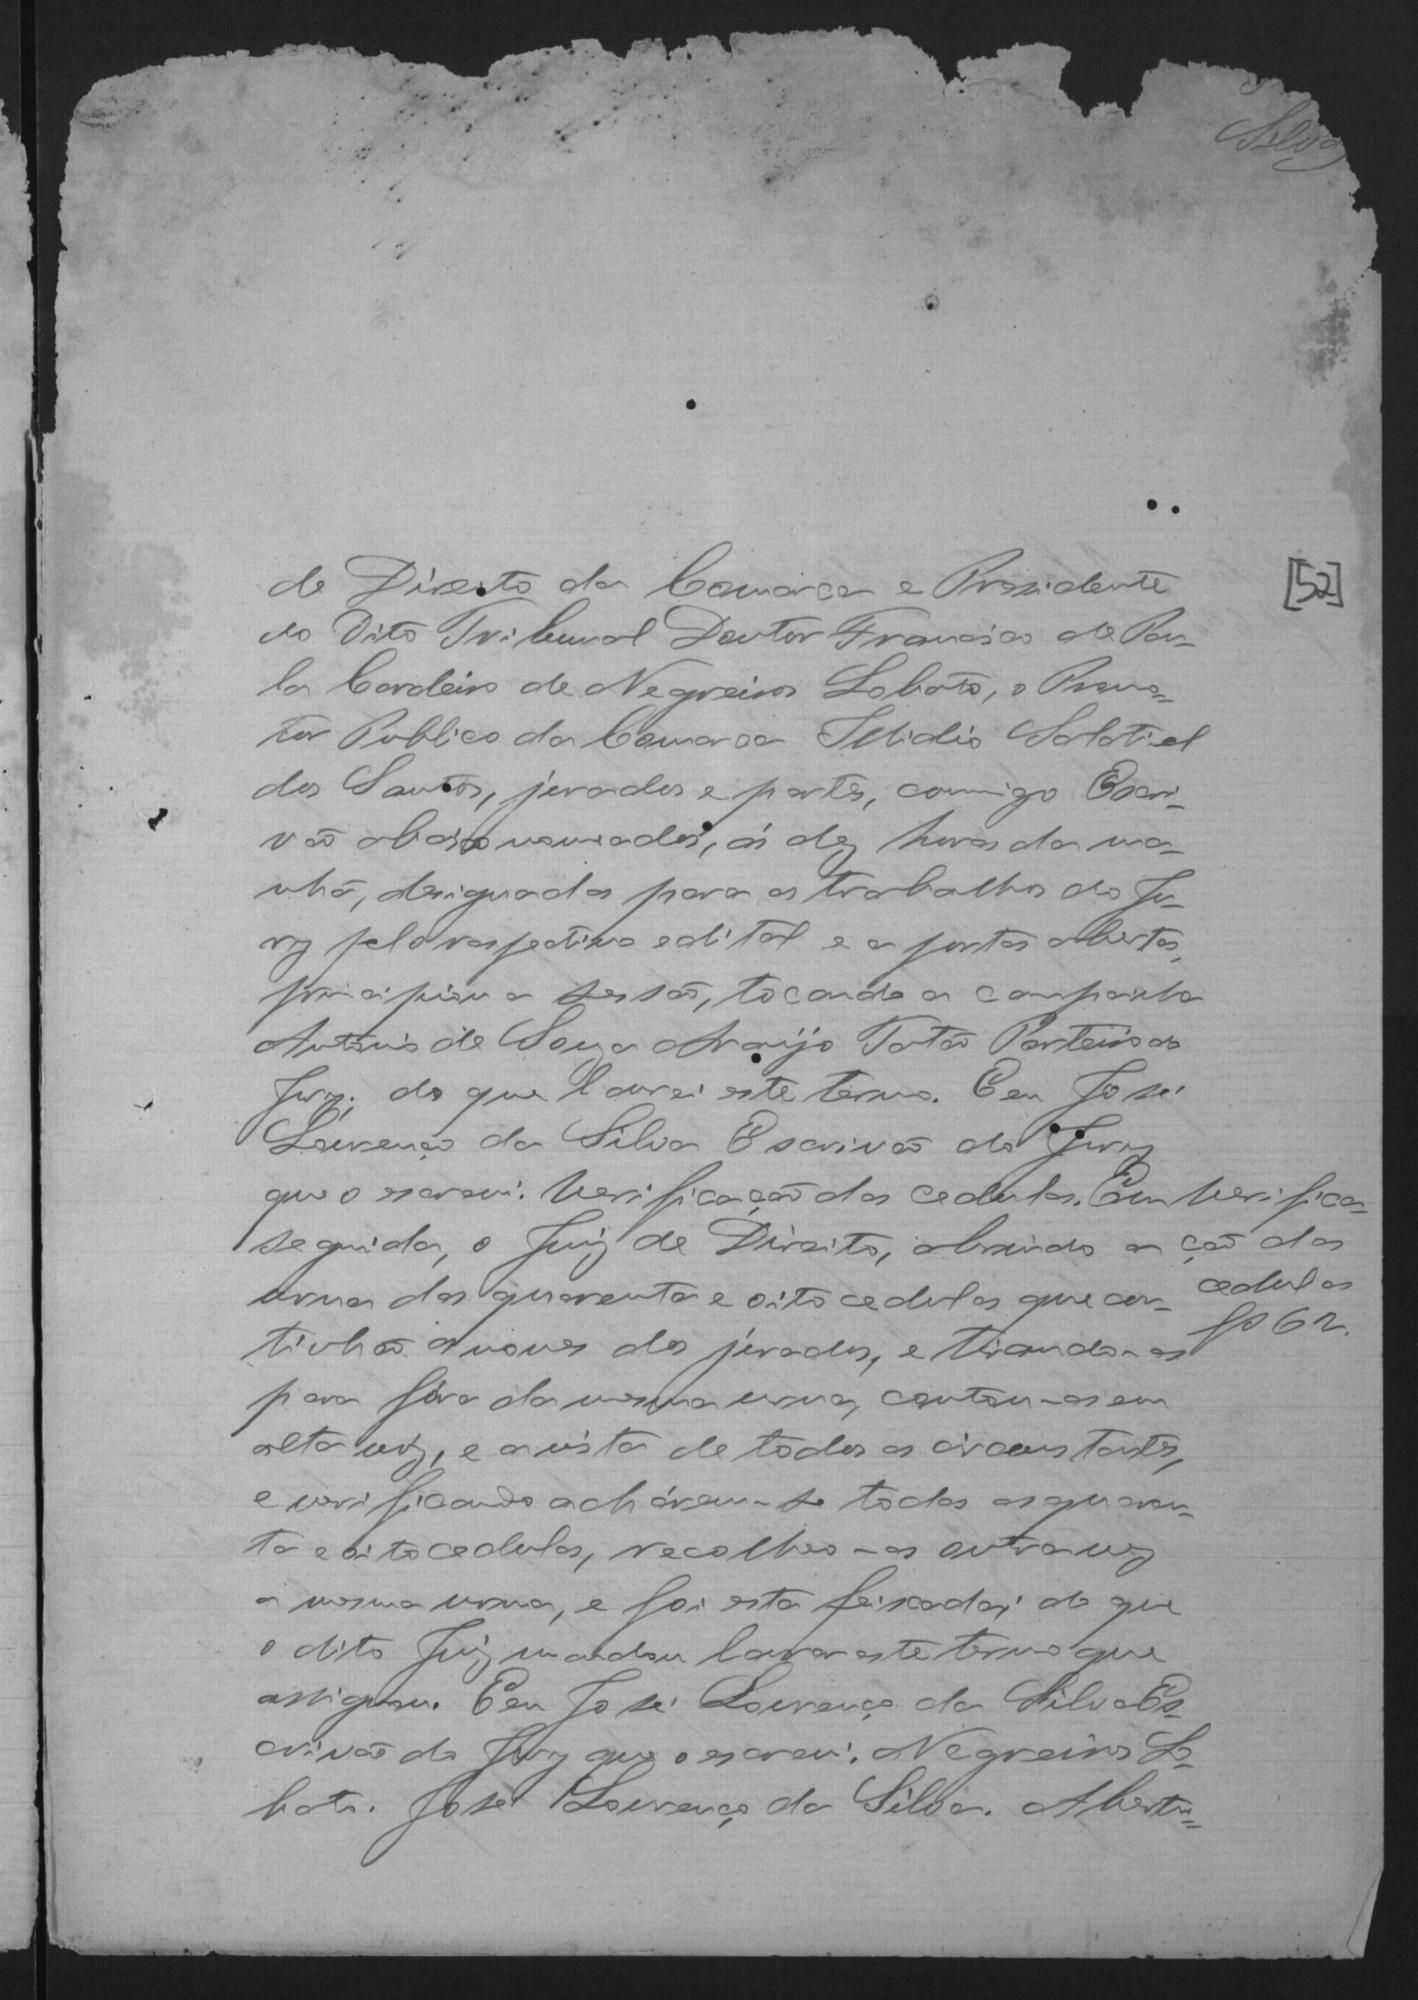 [52]
de Direito da Comarca e Presidente
do dito Tribunal Doutor Francisco de Pau=
la Cordeiro de Negreiros Lobato, o Promo=
tor Publico da Comarca Salatiel
dos Santos, jurados e partes, commigo Escri=
vão abaixo nomeados, ás dez horas da ma=
nhã, designadas para os trabalhos do Ju=
ry pelo respectivo edital e a portas abertas,
principiou a sessão, tocando a campainha
Antonio de Souza Araujo Porteiro do
Jury; do que lavrei este termo. Eeu José
Lourenço da Silva Escrivão do Jury
que o escrevi. Verificação das cedulas. Em
seguida, o Juiz de Direito, abrindo a
urna das quarenta e oito cedulas que con=
tinhão os nomes dos jurados, e tirando-as
para fóra da mesma urna, contou-as em
alta voz, e a vista de todos os circunstantes,
e verificando acharem-se todas as quaren=
ta e oito cedulas, recolheo-as outra vez
a mesma urna, e foi esta feixada; de que
o dito Juiz mandou lavrar este termo que
assignou. Eeu José Lourenço da Silva Es=
crivão do Jury que o escrevi. Negreiros Lo=
bato. José Lourenço da Silva. Abertu=
Verifica=
ção das
cedulas